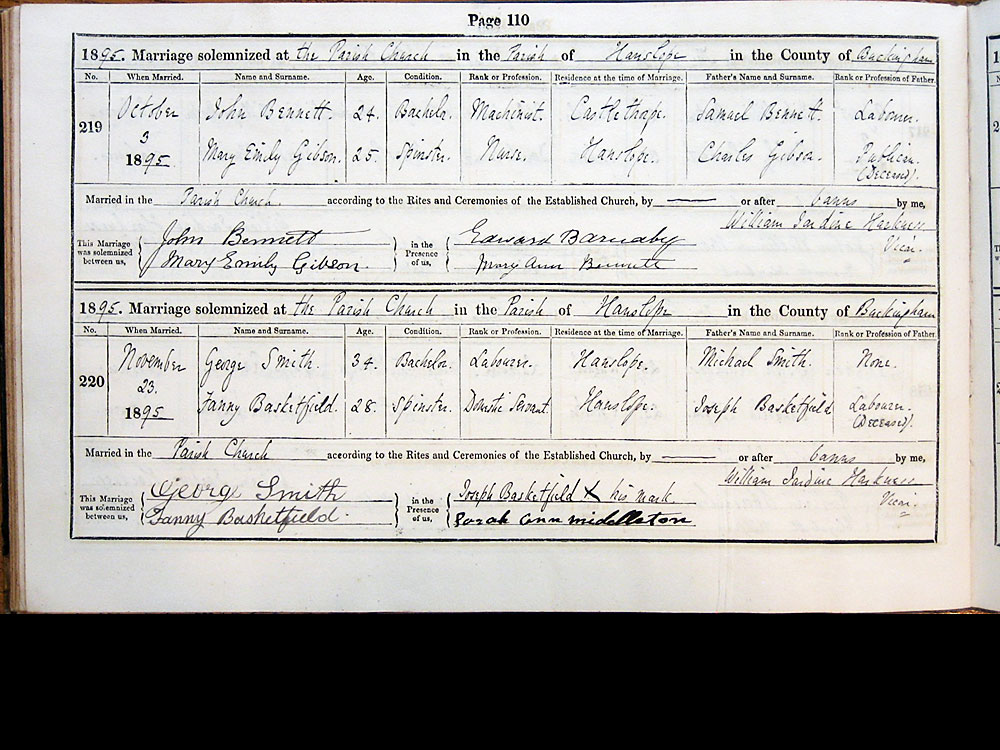 Page 110
1895. Marriage solemnized at the Parish Church in the Parish of Hanslope in the County of Buckingham
No. When Married. Name and Surname. Age. Condition. Rank or Profession. Residence at the time of Marriage. Father's Name and Surname. Rank or Profession of Father.
219 October 3 1895 John Bennett. 24. Bachelor. Machinist. Castlethorpe. Samuel Bennett. Labourer.
Mary Emily Gibson. 25. Spinster. Nurse. Hanslope. Charles Gibson. Publican. (Deceased).
Married in the Parish Church. according to the Rites and Ceremonies of the Established Church, by — or after banns by me,
William Jardine Harkness
Vicar.
This Marriage was solemnized between us, John Bennett in the Presence of us, Edward Barnaby
Mary Emily Gibson. Mary Ann Bennett
1895. Marriage solemnized at the Parish Church in the Parish of Hanslope in the County of Buckingham
No. When Married. Name and Surname. Age. Condition. Rank or Profession. Residence at the time of Marriage. Father's Name and Surname. Rank or Profession of Father.
220 November 23. 1895 George Smith. 34. Bachelor. Labourer. Hanslope. Michael Smith. None.
Fanny Basketfield. 28. Spinster. Domestic Servant. Hanslope. Joseph Basketfield Labourer. (Deceased).
Married in the Parish Church according to the Rites and Ceremonies of the Established Church, by — or after banns by me,
William Jardine Harkness
Vicar.
This Marriage was solemnized between us, George Smith in the Presence of us, Joseph Basketfield X his mark.
Fanny Basketfield. Sarah Ann Middleton